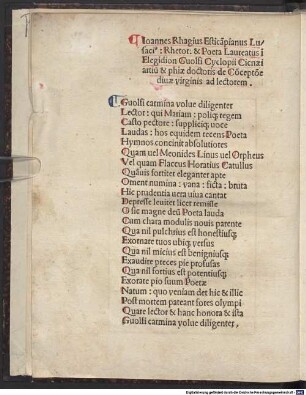 Ioannes Rhagius Esticãpianus Lu-
saci⁹: Rhetor. & Poeta Laureatus i
Elegidion Guolfi Cyclopii Cicnæi
artiũ & phiæ doctoris de Cõceptõe
diuæ virginis ad lectorem.
Guolfi carmina volue diligenter
Lector: qui Mariam: poliq; regem
Casto pectore: suppliciq; uoce
Laudas: hos equidem recens Poeta
Hymnos concinit absolutiores
Quam uel Meonides Linus uel Orpheus
Vel quam Flaccus Horatius Catullus
Quãuis fortiter eleganter apte
Oment numina: uana: ficta: bruta
Hic prudentia uera uiua cantat
Depresse leuiter licet remisse
O sue magne deũ Poeta lauda
Cum chara modulis noui parente
Qua nil pulchrius est honestiusq;
Exornate tuos ubiq; versus
Qua nil micius est benigniusq;
Exaudire preces pie profusas
Qua nil fortius est potentiusq;
Exorate pio suum Poetæ
Natum: quo veniam det hic & illic
Post mortem pateant fores olympi
Quare lector & hanc honora & ista
Guolfi carmina volue diligenter,